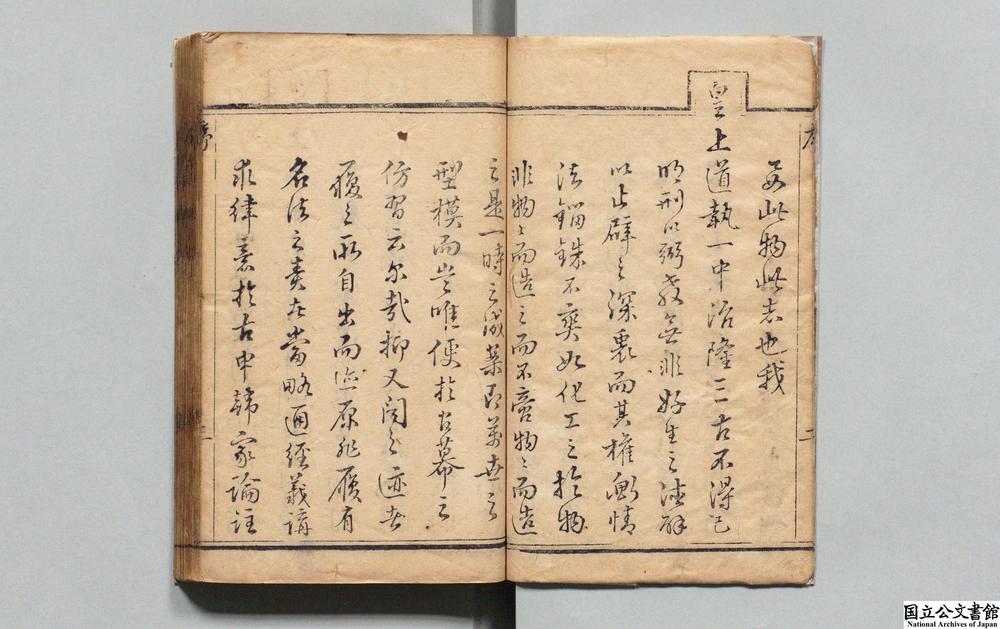 序
二
妄此物此志也我
皇上道執一中治隆三古不得已
明刑以弼教無非好生之德辟
以止辟之深衷而其權衡情
法錙銖不爽如化工之於物
非物物而造之而不啻物物而造
之是一時之成案即萬世之
型模而豈唯便於占幕之
仿習云尔哉抑又聞之迹者
履之所自出而迹原非履有
名法之責者當略通經義講
求律意於古申韓家論註
序
三
国立公文書館
National Archives of Japan